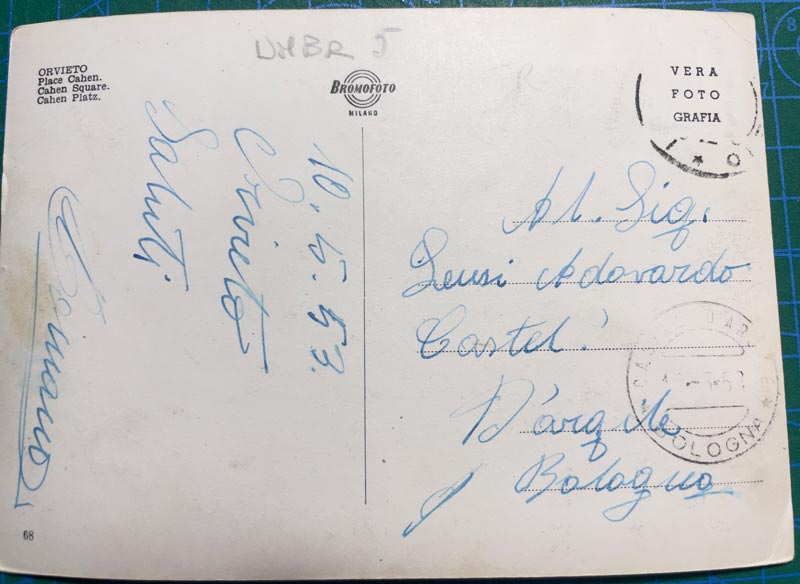 UMBR 5
ORVIETO
Place Cahen.
Cahen Square.
Cahen Platz.
BROMOFOTO
MILANO
VERA
FOTO
GRAFIA
10.5.53.
Orvieto
Saluti
Al. Sig.
Adovardo
Castel!
D'argile
Bologna
BOLOGNA
68